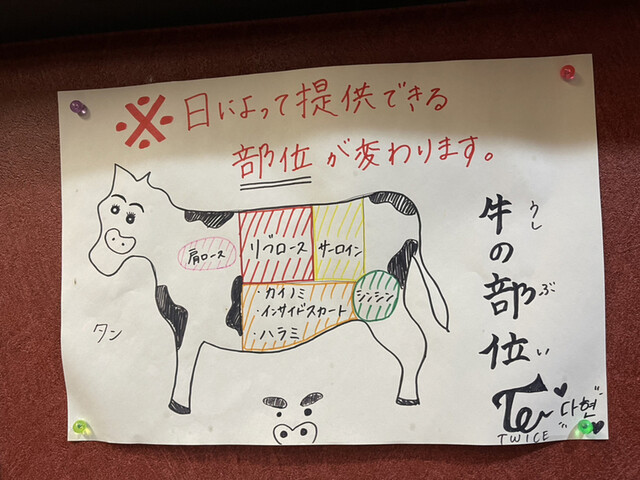 ※日によって提供できる
部位が変わります。
肩ロース
リブロース
サーロイン
・カイノミ
・インサイドスカート
・ハラミ
シンシン
タン
牛の部位
うし
ぶ
い
TWICE
다현